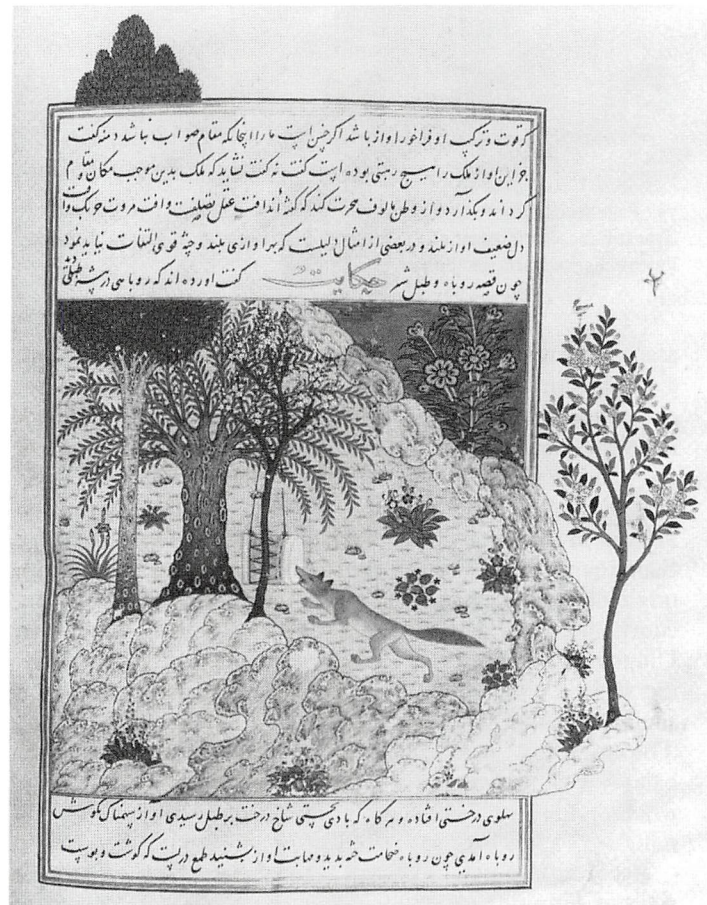 که قوت و ترکیب او فراخور اواز باشد اکر چنین است مارا اینجا که مقام صواب نباشد دمنه کفت
جز این اواز ملک را هیچ ریبتی بوده است کفت نه کفت نشاید که ملک بدین موجب مکان و مقام
کرداند و بکذارد و از وطن مالوف هجرت کند که کفته‌اند افت عقل تصلفت و افت مروت چربک و افت
دل ضعیف اواز بلند و در بعضی از امثال دلیلست که بهر اوازی بلند و جثه قوی التفات نباید نمود
چون قصه روباه و طبل شیر حکایت کفت اورده اند که روباهی در بیشه طبلی دید
پهلوی درختی افتاده و هر کاه که بادی بجستی شاخ درخت بر طبل رسیدی اواز سهمناک بکوش
روباه آمدی چون روباه ضخامت جثه بدید و مهابت اواز بشنید طمع دربست که کوشت و پوست